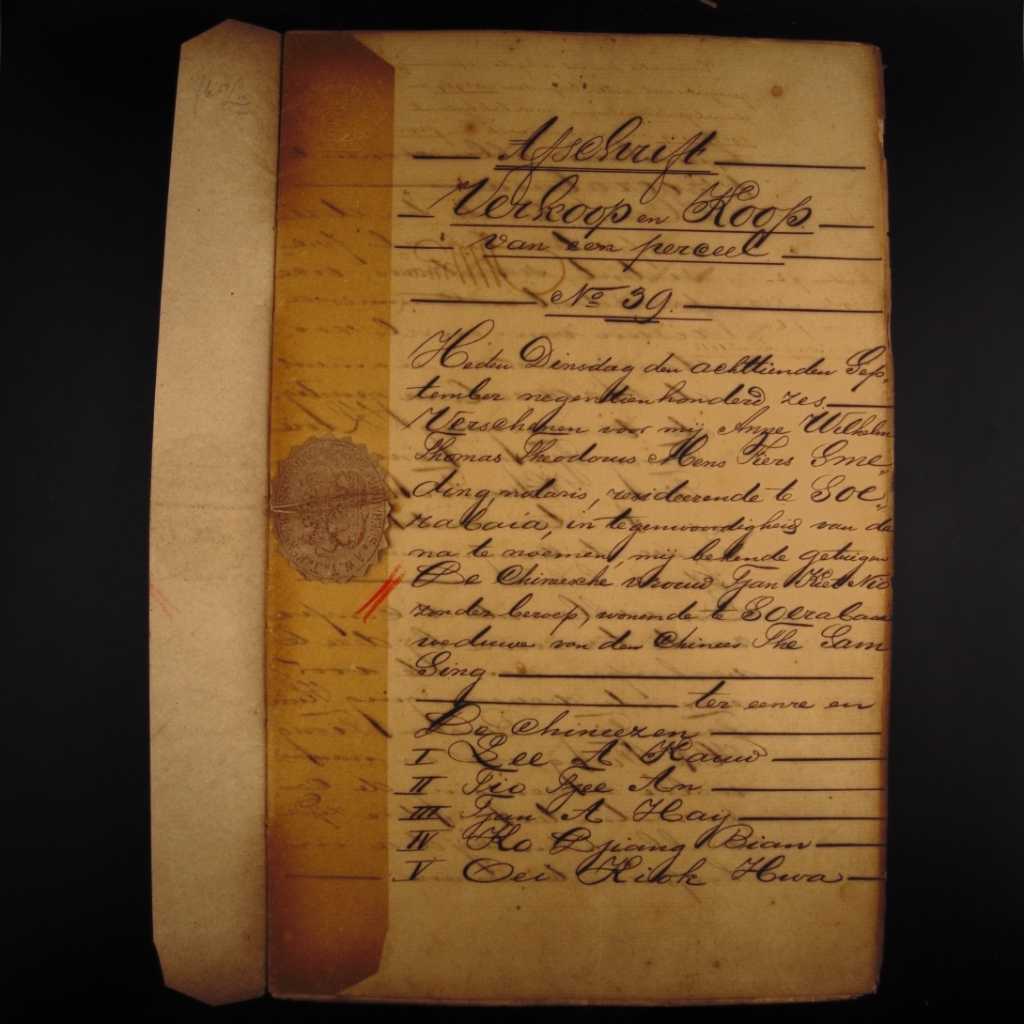 Afschrift
Verkoop en Koop
van een perceel
No 39.
Heden Dinsdag den achttienden Sep-
tember negentienhonderd zes.
Verschenen voor mij Anze Wilhelm
Thomas Theodorus Mens Fiers Sme-
ding, notaris, resideerende te Soe-
rabaia, in tegenwoordigheid van de
na te noemen, mij bekende getuigen
De Chineesche vrouw Tjan Kiet Nio
zonder beroep, wonende te Soerabaia
weduwe van den Chinees The Sam
Sing
ter eenre en
De Chineezen
I Lee A Kauw
II Tio Tjee An
III Tjan A Hay
IV Ko Djiang Bian
V Oei Kiok Hwa